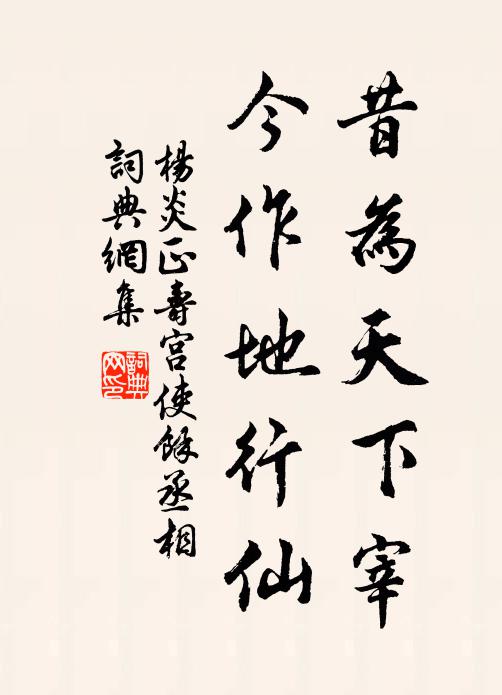 昔為天下宰
今作地行仙
楊炎正壽宮使餘丞相
詞典網集
詞典網印